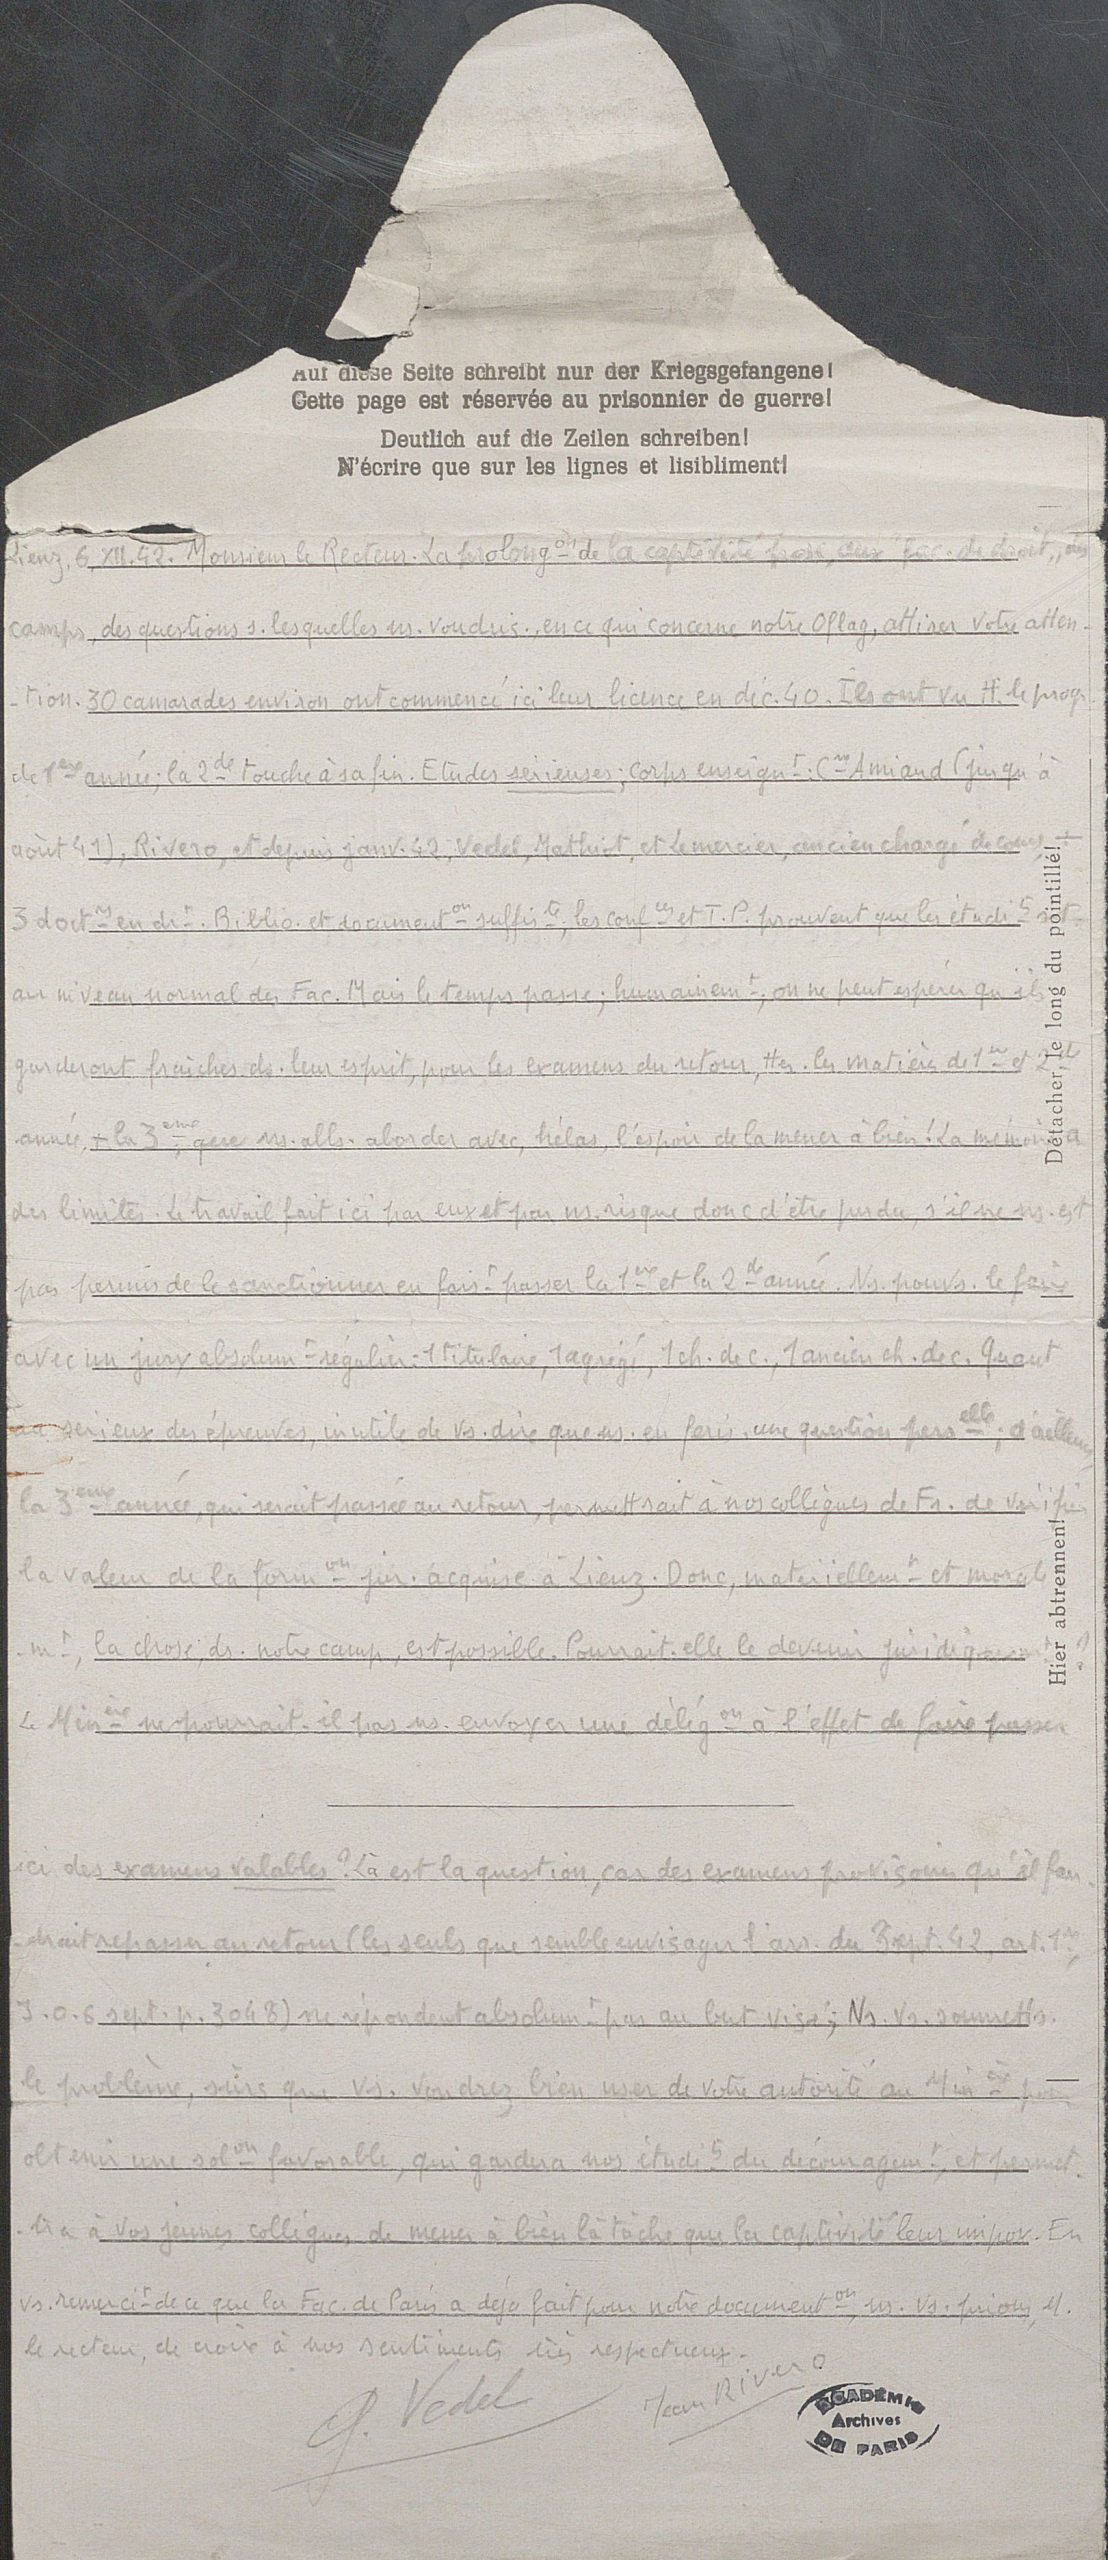 Auf diese Seite schreibt nur der Kriegsgefangene!
Cette page est réservée au prisonnier de guerre!
Deutlich auf die Zeilen schreiben!
N'écrire que sur les lignes et lisibliment!
Lienz, 6 XII.42. Monsieur le Recteur. La prolong.on de la captivité pose, aux "fac. de droit", des
camps, des questions s. lesquelles ns. voudris., en ce qui concerne notre Oflag, attirer votre atten-
-tion. 30 camarades environ ont commencé ici leur licence en déc. 40. Ils ont vu tt. le progr.
de 1ère année; la 2de touche à sa fin. Etudes sérieuses; corps enseignt: Amiaud (jusqu'à
août 41), Rivero, et depuis janv. 42, Vedel, Mathiot, et Lemercier, ancien chargé de cours, +
3 doctrs en drt. Biblio. et documenton suffiste; les confces et T.P. prouvent que les étudits st.
au niveau normal des Fac. Mais le temps passe; humainemt, on ne peut espérer qu'ils
garderont fraîches ds. leur esprit, pour les examens du retour, ttes. les matières de 1ère et 2de
année, + la 3ème, que ns. alls. aborder avec, hélas, l'espoir de la mener à bien! La mémoire a
des limites. Le travail fait ici par eux et par ns. risque donc d'être perdu, s'il ne ns. est
pas permis de le sanctionner en faist passer la 1ère et la 2de année. Ns. pouvs. le faire
avec un jury absolumt régulier: 1 titulaire, 1 agrégé, 1 ch. de c., 1 ancien ch. de c. Quant
au sérieux des épreuves, inutile de vs. dire que ns. en feris. une question perselle; d'ailleurs
la 3ème année, qui serait passée au retour, permettrait à nos collègues de Fr. de vérifier
la valeur de la formon jur. acquise à Lienz. Donc, matériellemt et morale-
-mt, la chose, ds. notre camp, est possible. Pourrait-elle le devenir juridiquemt?
Le Minère ne pourrait-il pas ns. envoyer une délégon à l'effet de faire passer
ici des examens valables? Là est la question, car des examens provisoires qu'il fau-
-drait repasser au retour (les seuls que semble envisager l'arr. du 3 sept. 42, art. 1er,
J.O. 6 sept. p. 3048) ne répondent absolumt pas au but visé; Ns. vs. soumetts.
le problème, sûrs que vs. voudrez bien user de votre autorité au Minère pour
obtenir une solon favorable, qui gardera nos étudits du découragemt, et permet-
-tra à vos jeunes collègues de mener à bien la tâche que la captivité leur impose. En
vs. remercit de ce que la Fac. de Paris a déjà fait pour notre documenton, ns. vs. prions, M.
le recteur, de croire à nos sentiments très respectueux.
G. Vedel
Jean Rivero
ACADÉMIE
Archives
DE PARIS
Détacher le long du pointillé!
Hier abtrennen!